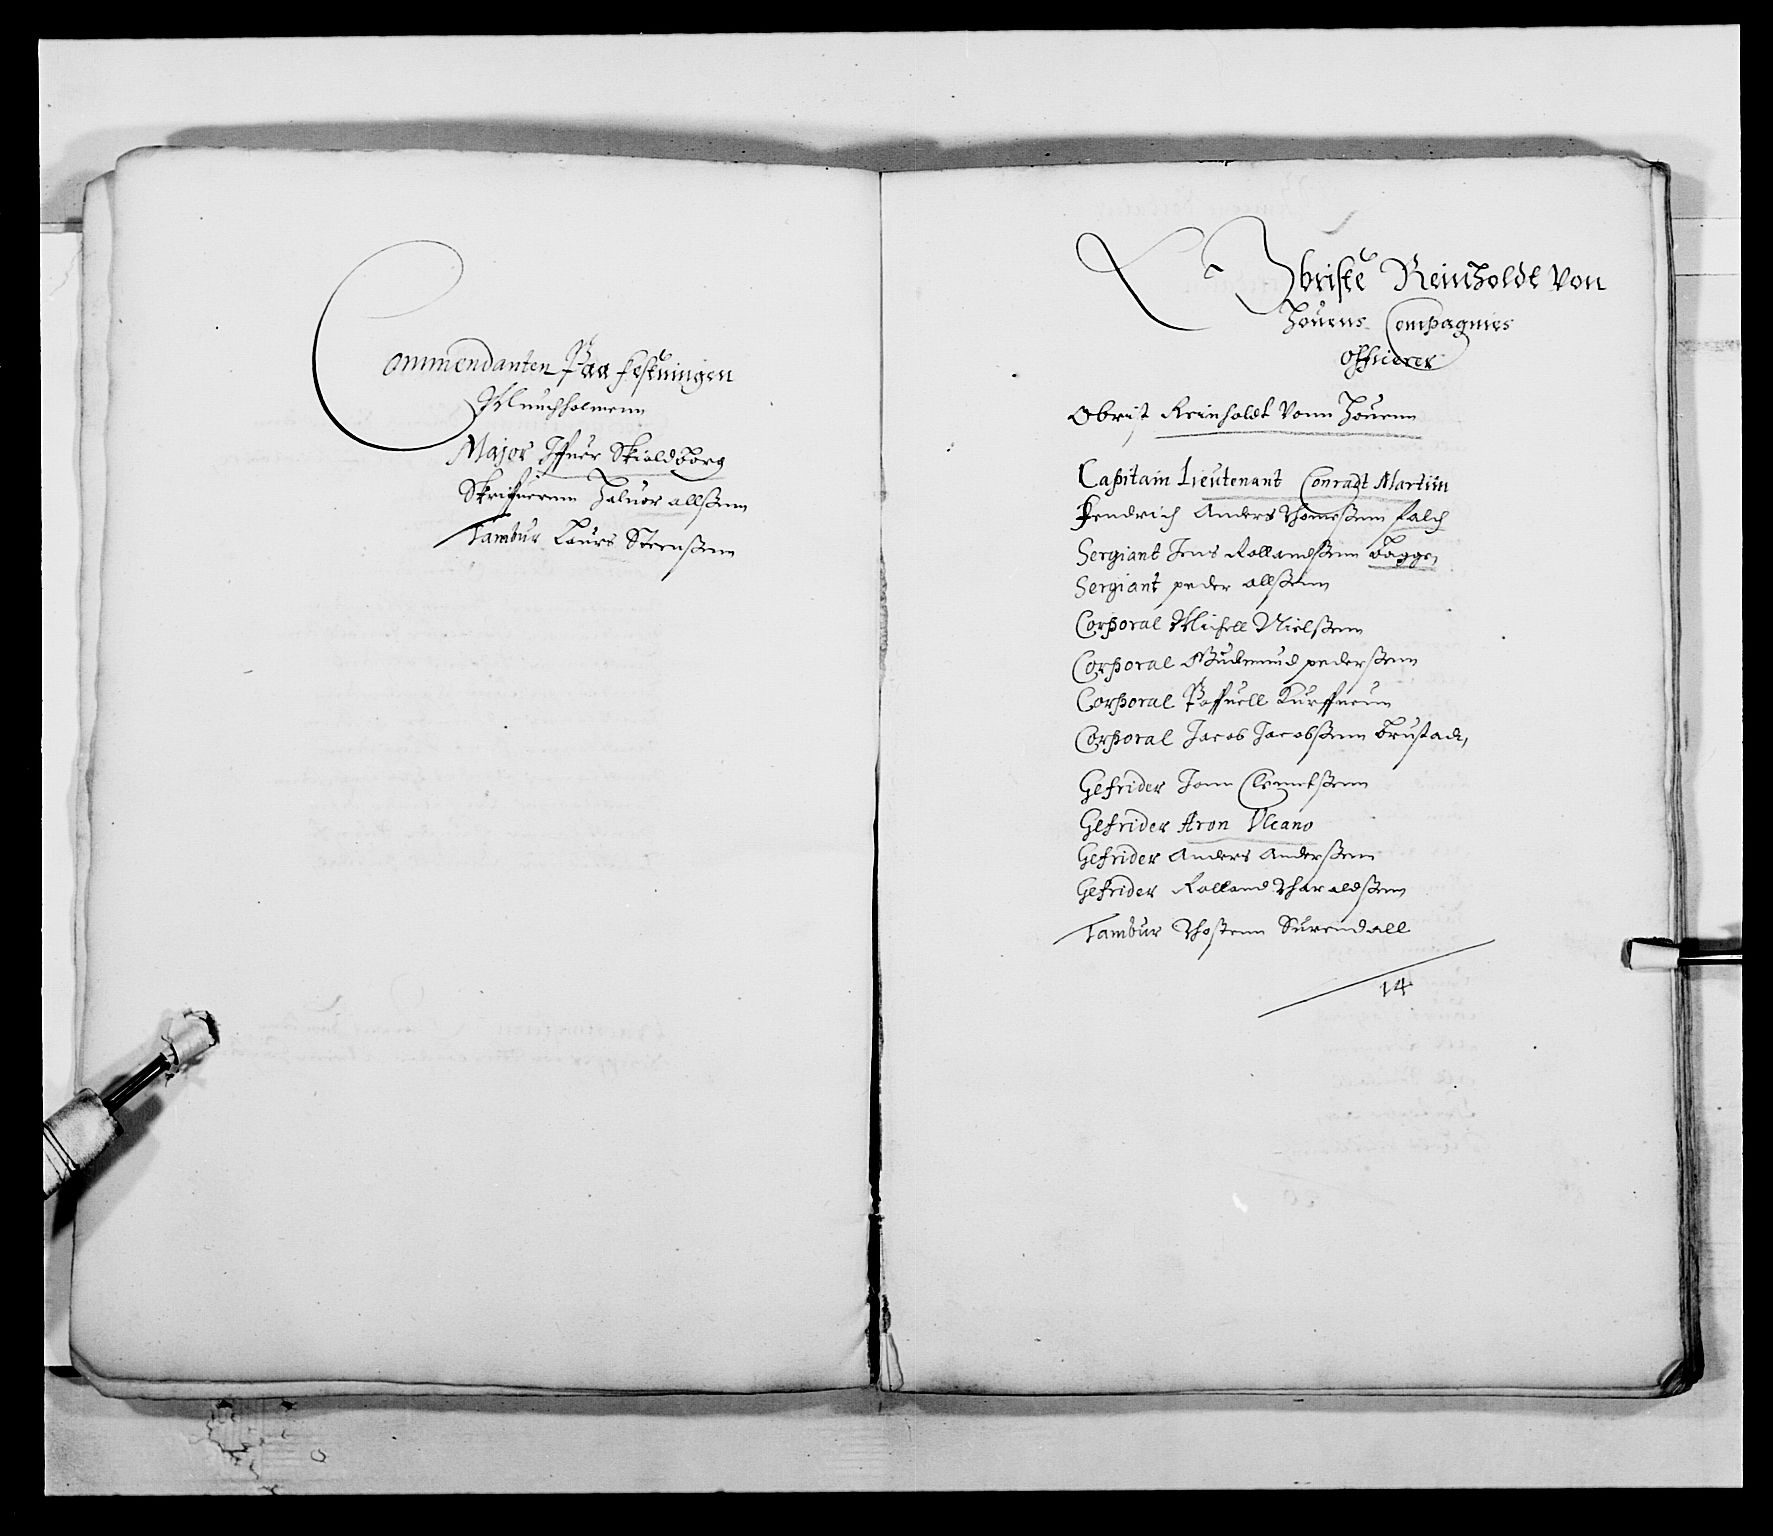 Commendanten Paa festningen
Munchholmenn
Major Iffuer Skioldborg
Skrifueren Haluor allßenn
Tambur Laurs Steenßenn
Obriste Reinholdt Von
Houens Compagnies
officerer
Obrist Reinholdt Vonn Houenn
Capitain Lieutenant Conradt Martiin
fendrich Anders Thomeßenn falch
Sergiant Jens Rollandßenn Bagge,
Sergiant peder allßenn
Corporal Michell Nielßenn
Corporal Gudmund pederßenn
Corporal Paffuell
Corporal Jacob Jacobßenn Brustad,
Gefrider Joen Clemetßenn
Gefrider Aron Vleano
Gefrider Anders Anderßenn
Gefrider Rolland Tharaldßenn
Tambur Thostenn Surendall
14